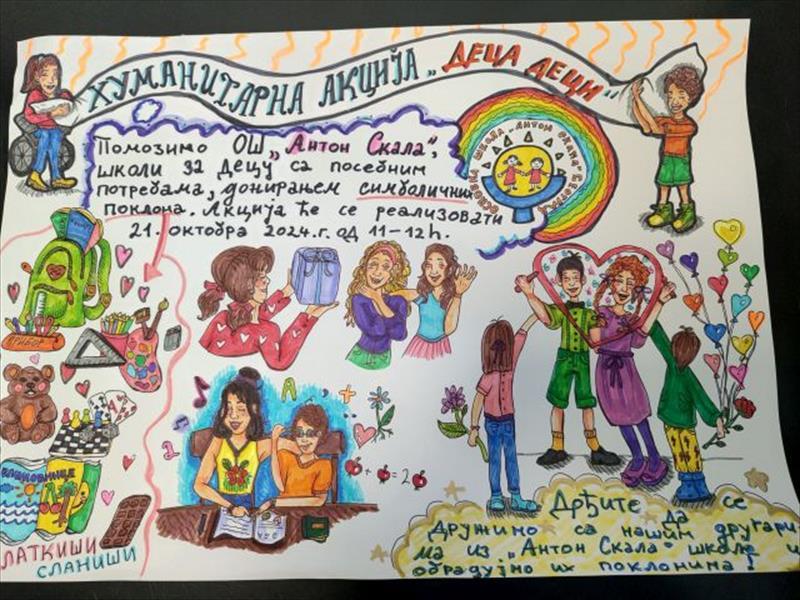 ХУМАНИТАРНА АКЦИЈА „ ДЕЦА ДЕЦИ "
Помозимо ОШ „Антон Скала",
школи за децу са посебним
потребама, донирањем симболичних
поклона. Акција ће се реализовати
21. октобра 2024.г. од 11-12h.
ОСНОВНА ШКОЛА „АНТОН СКАЛА" БЕОГРАД
ПРИБОР
A
+
2
+ = 2
БЛАГОВНИЦЕ
ЛАТКИШИ
СЛАНИШИ
Дођите да се
дружимо са нашим другари
ма из „Антон Скала" школе и
обрадујмо их поклонима!